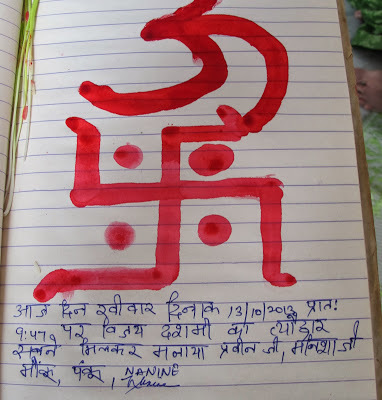 ॐ
आज दिन रवीवार दिनाक 13/10/2013 प्रात:
9:47 पर विजय दशमी का त्यौहार
सबने मिलकर मनाया प्रवीन जी, मनिशा जी
मोंटू, पंकू, NANINE